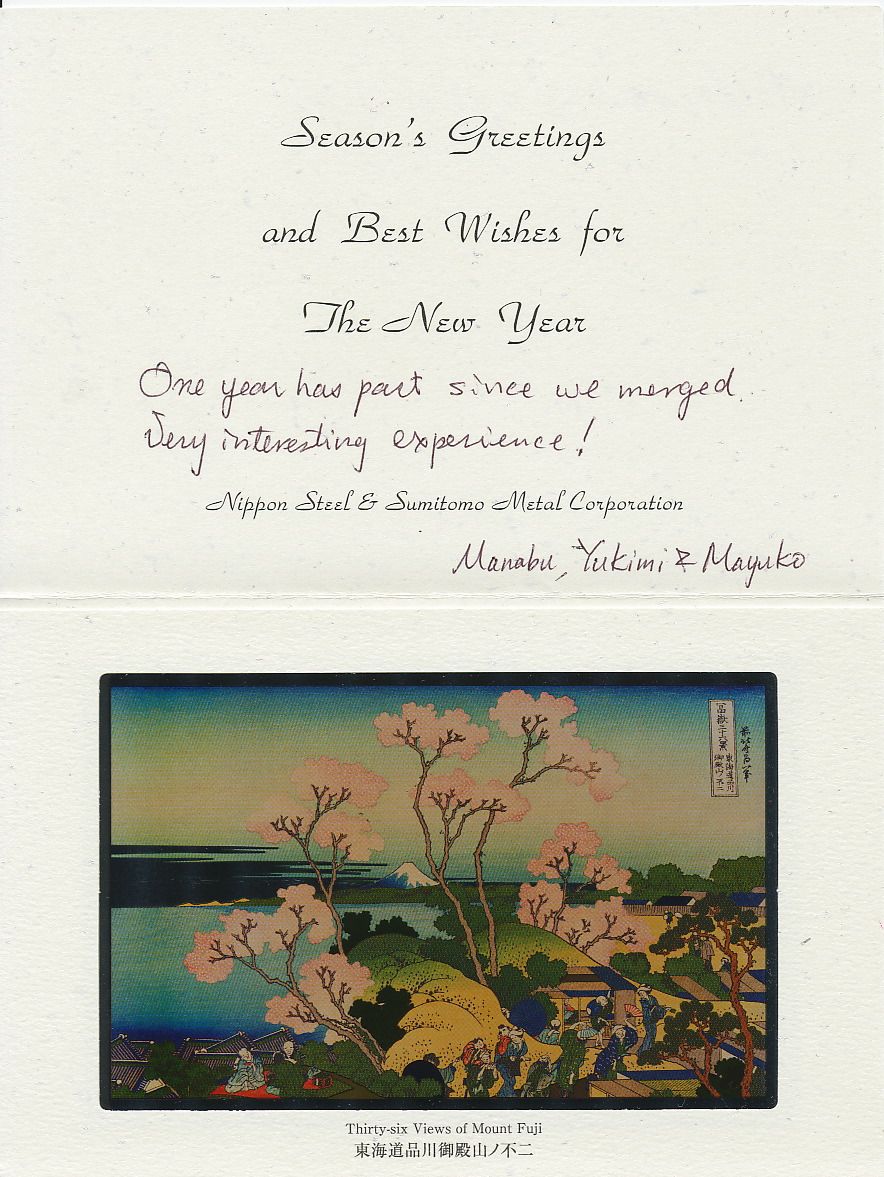 Season's Greetings
and Best Wishes for
The New Year
One year has past since we merged.
Very interesting experience!
Nippon Steel & Sumitomo Metal Corporation
Manabu, Yukimi & Mayuko
冨嶽三十六景
東海道品川
御殿山ノ不二
前北斎為一筆
Thirty-six Views of Mount Fuji
東海道品川御殿山ノ不二